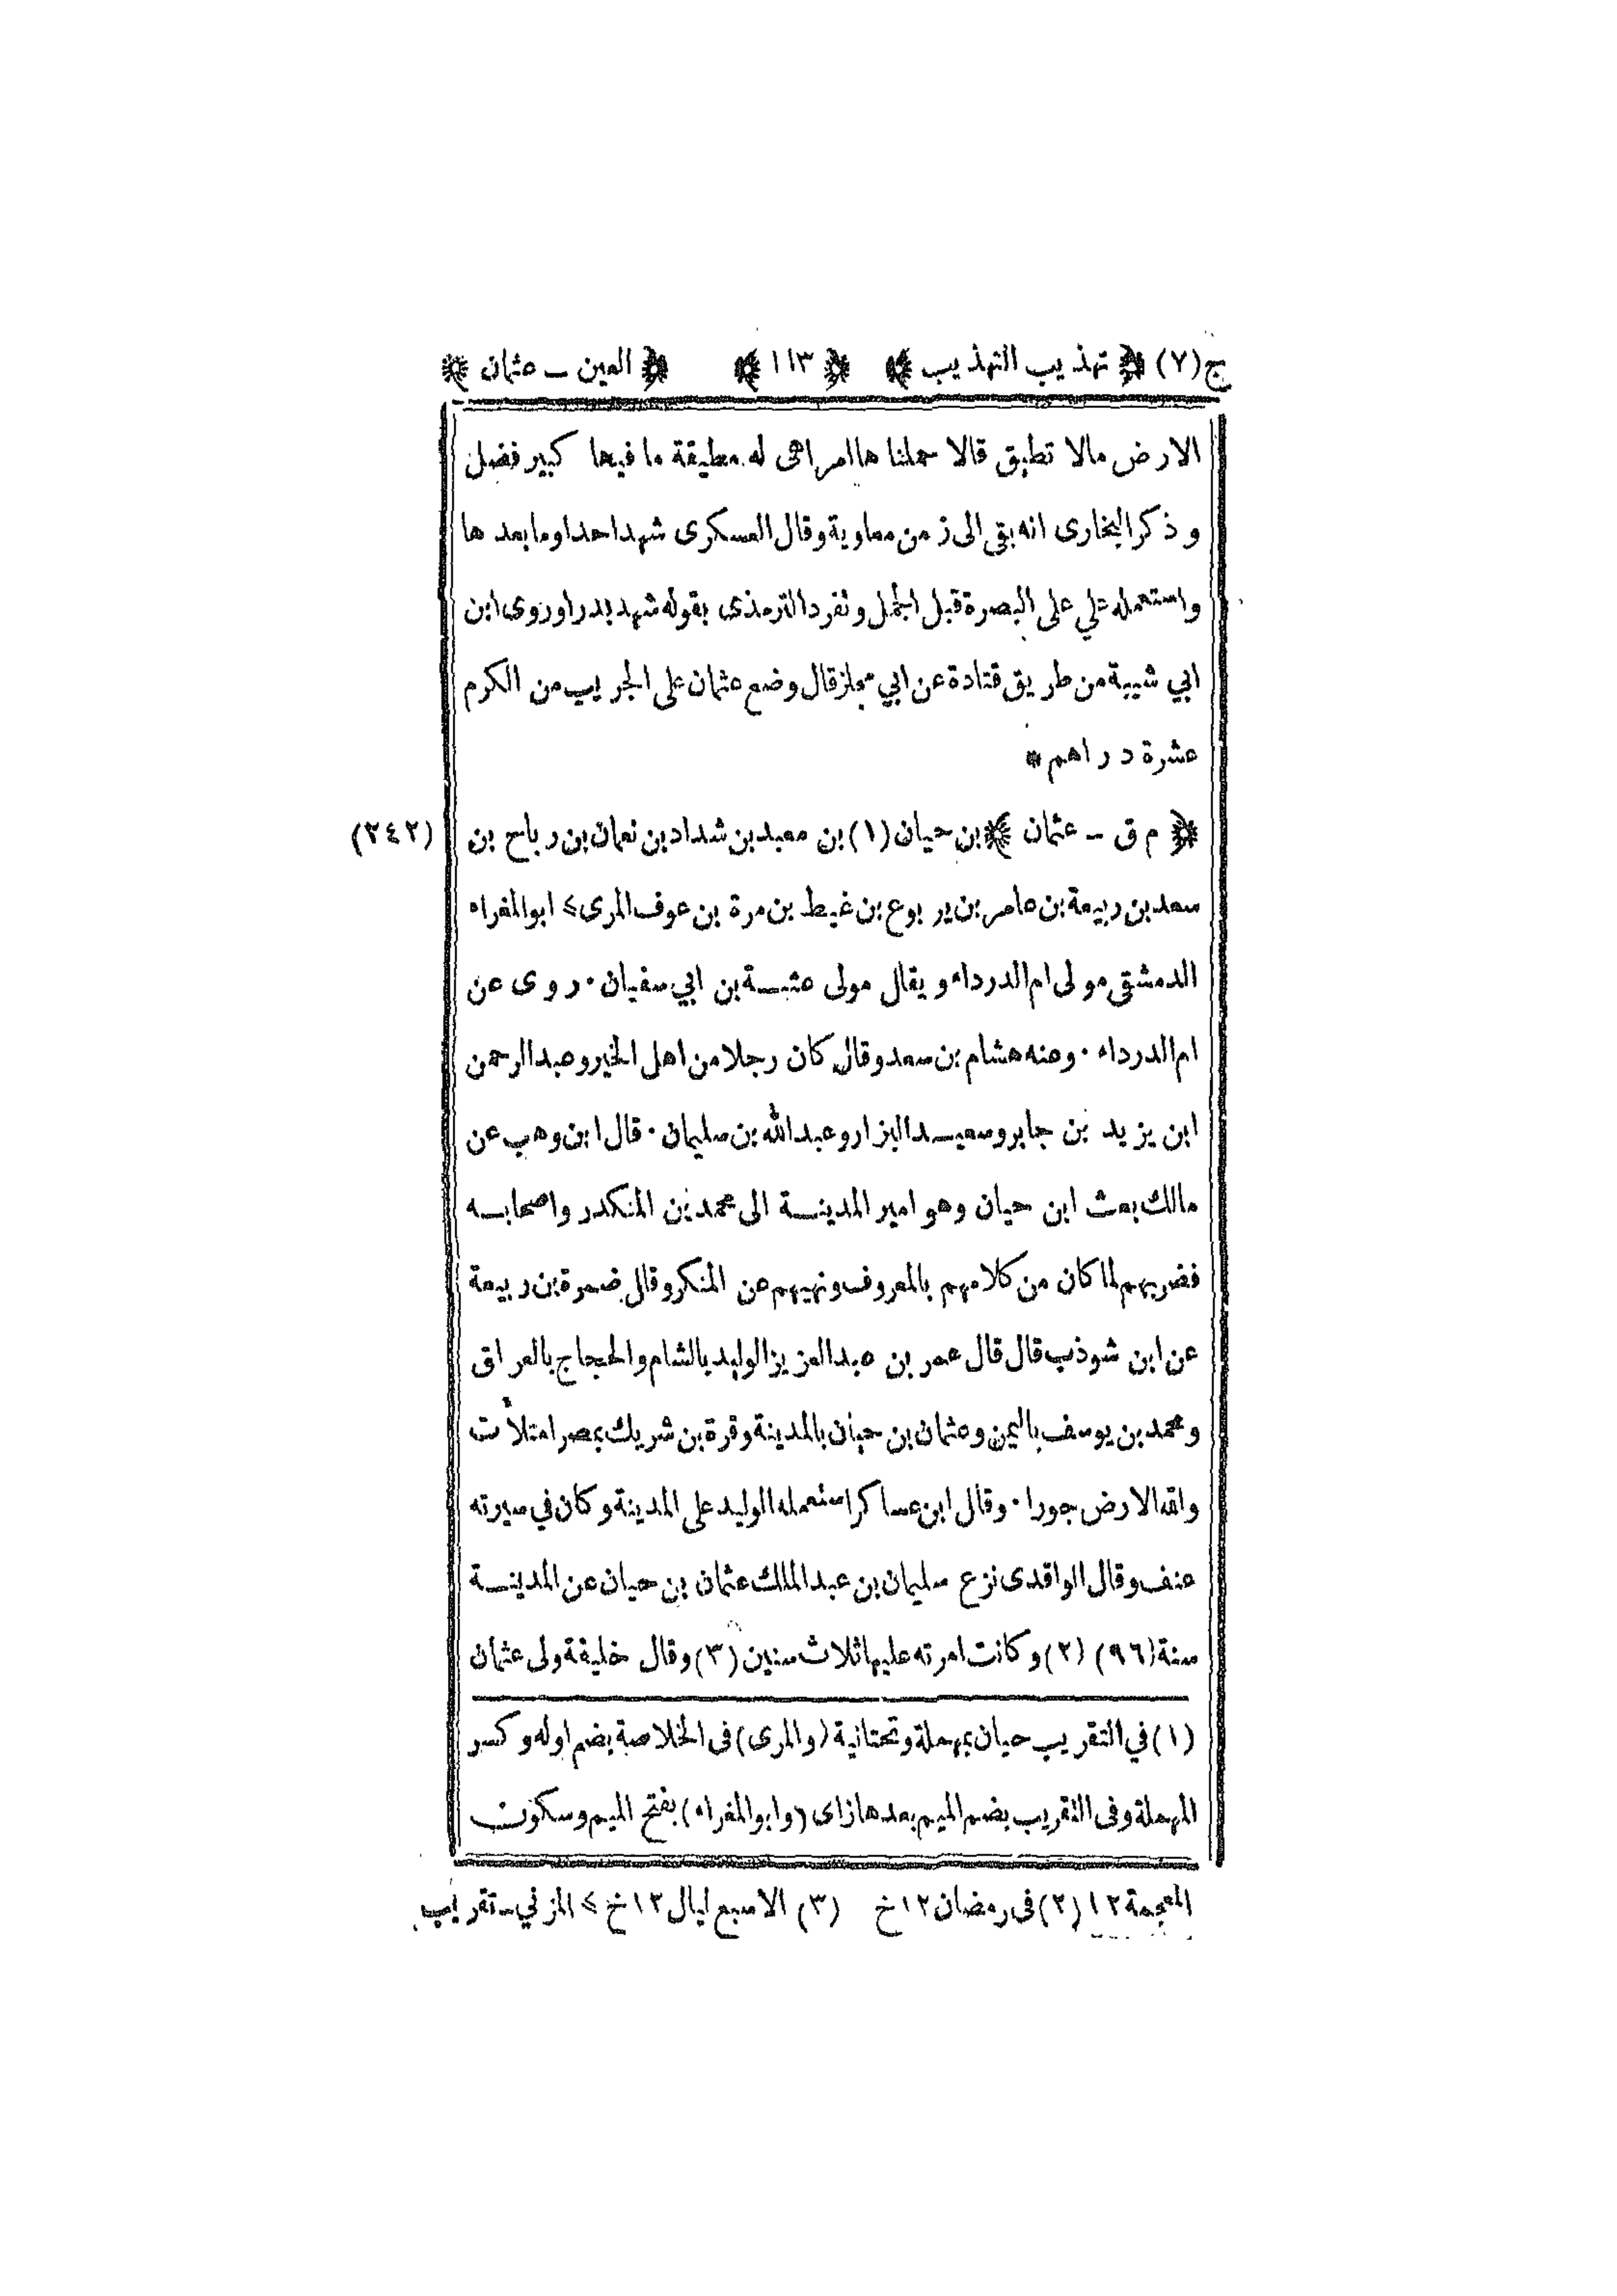 ج (٧) ﴿ تهذيب التهذيب ﴾ ﴿ ١١٣ ﴾ ﴿ العين ـ عثمان ﴾
الارض مالا تطيق قالا حملناها امرا هى له مطيقة ما فيها كبير فضل
و ذكر البخارى انه بقى الى زمن معاوية وقال العسكرى شهد احدا وما بعد ها
واستعمله علي على البصرة قبل الجمل وتفرد الترمذى بقوله شهد بدرا وروى ابن
ابي شيبة من طريق قتادة عن ابي مجلز قال وضع عثمان على الجريب من الكرم
عشرة دراهم *
﴿ م ق ـ عثمان ﴾ بن حيان (١) بن معبد بن شداد بن نعمان بن رباح بن (٢٤٢)
سعد بن ربيعة بن عامر بن يربوع بن غيط بن مرة بن عوف المرى > ابو المغراء
الدمشقى مولى ام الدرداء ويقال مولى عتبة بن ابي سفيان . روى عن
ام الدرداء . وعنه هشام بن سعد وقال كان رجلا من اهل الخير وعبد الرحمن
ابن يزيد بن جابر وسعيد البزار وعبد الله بن سليمان . قال ابن وهب عن
مالك بعث ابن حيان وهو امير المدينة الى محمد بن المنكدر واصحابه
فضربهم لما كان من كلامهم بالمعروف ونهيهم عن المنكر وقال ضمرة بن ربيعة
عن ابن شوذب قال قال عمر بن عبد العزيز الوليد بالشام والحجاج بالعراق
ومحمد بن يوسف باليمن وعثمان بن حيان بالمدينة وقرة بن شريك بمصر امتلأت
والله الارض جورا . وقال ابن عساكر استعمله الوليد على المدينة وكان في سيرته
عنف وقال الواقدى نزع سليمان بن عبد الملك عثمان بن حيان عن المدينة
سنة (٩٦) (٢) وكانت امرته عليها ثلاث سنين (٣) وقال خليفة ولى عثمان
(١) في التقريب حيان بمهملة وتحتانية (والمرى) فى الخلاصة بضم اوله وكسر
المهملة وفى التقريب بضم الميم بعدها زاى (وابو المغراء) بفتح الميم وسكون
المعجمة ١٢ (٢) فى رمضان ١٢ خ (٣) الا سبع ليال ١٢ خ > المزني ـ تقريب